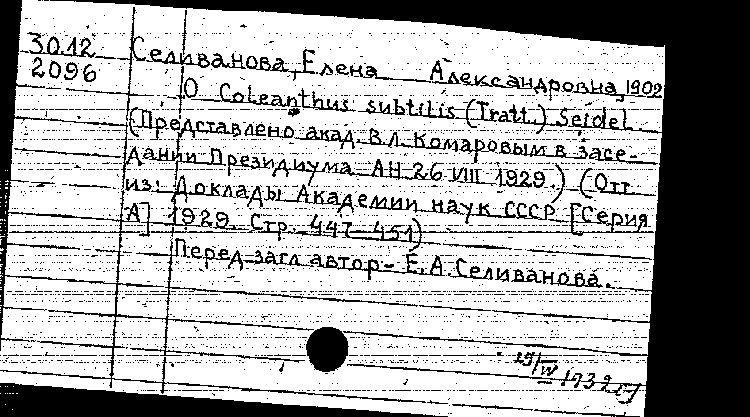 30.12
2096
Селиванова, Елена Александровна, 1902
О Coleanthus subtilis (Tratt.) Seidel.
(Представлено акад. В.Л. Комаровым в засе-
дании Президиума АН 26 VIII 1929.) (Отт.
из: Доклады Академии наук СССР [Серия
А] 1929. Стр. 447-451)
Перед загл автор - Е. А. Селиванова.
19/IV 1932